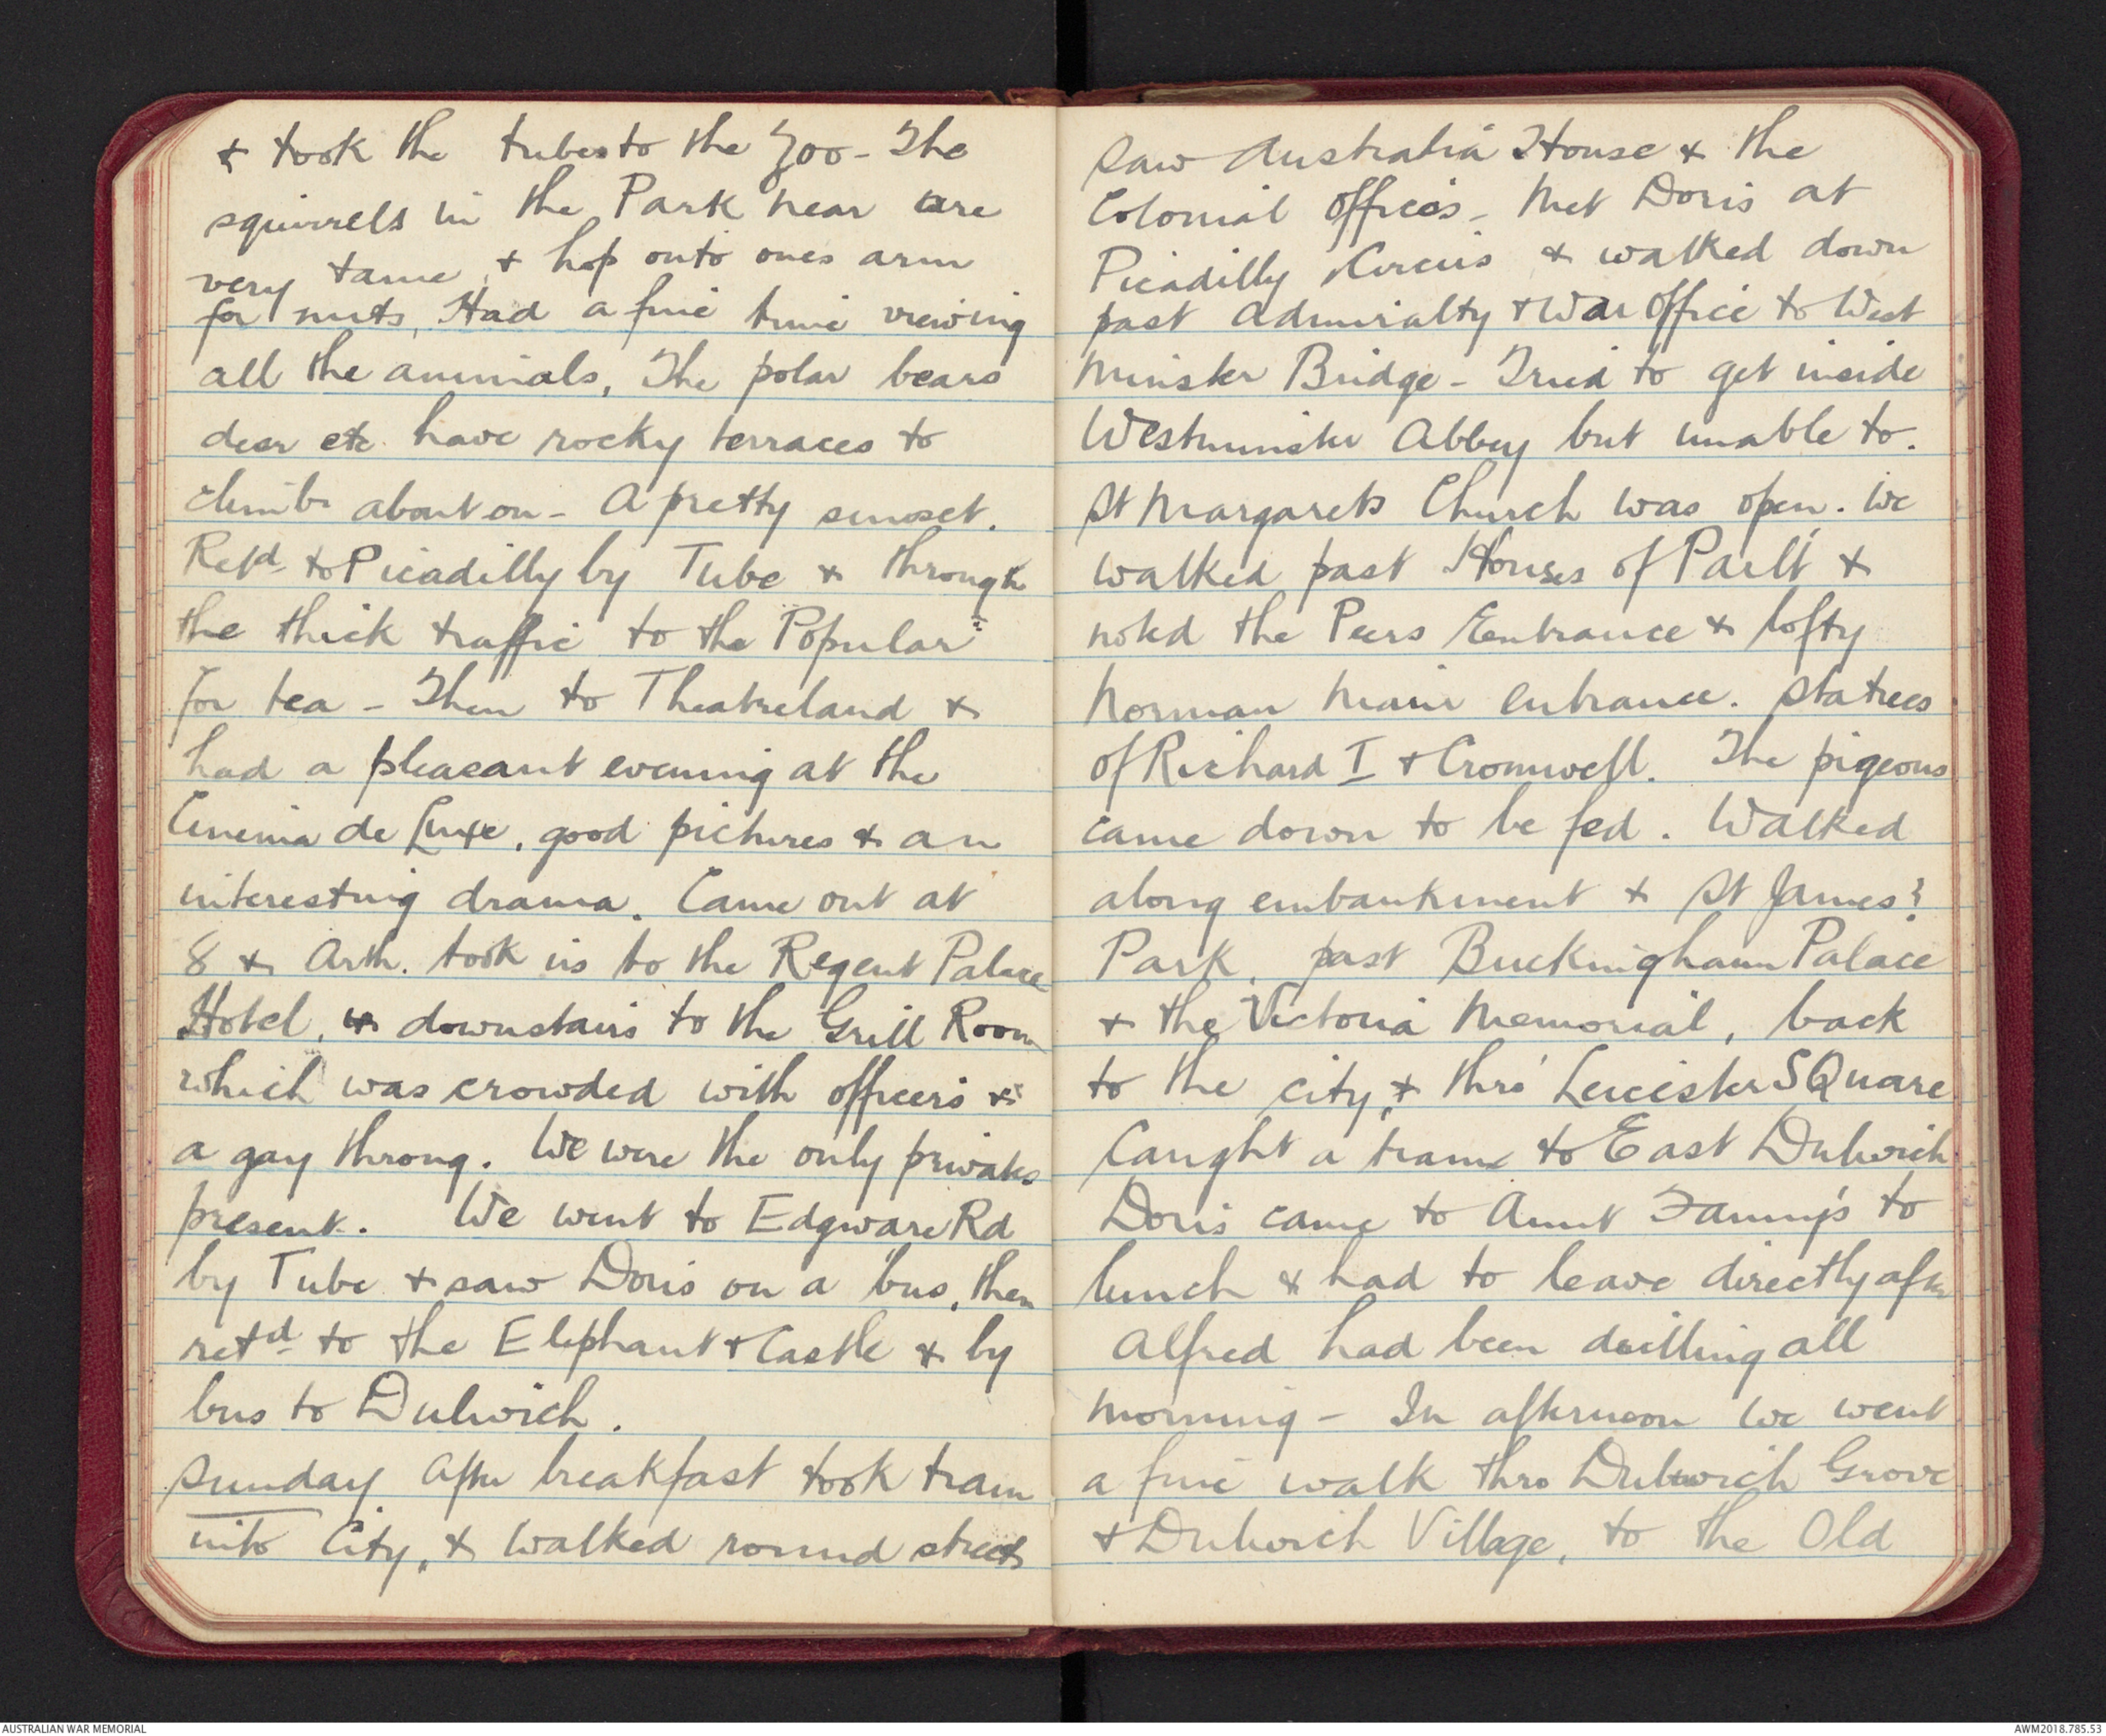 & took the tubes to the Zoo - The
squirrels in the Park near are
very tame, & hop onto ones arm
for nuts, Had a fine time viewing
all the animals, The polar bears
deer etc have rocky terraces to
climb about on - A pretty sunset.
Retd to Picadilly by Tube & through
the thick traffic to the Popular
for tea - Then to Theatreland &
had a pleasant evening at the
Cinema de Luxe, good pictures & an
interesting drama. Came out at
8 & Arth. took us to the Regent Palace
Hotel, & downstairs to the Grill Room
which was crowded with officers &
a gay throng. We were the only privates
present. We went to Edgware Rd
by Tube & saw Doris on a bus, then
retd to the Elephant & Castle & by
bus to Dulwich.
Sunday After breakfast took tram
into City, & walked round streets
saw Australia House & the
Colonial Offices - Met Doris at
Picadilly Circus & walked down
past Admiralty & War Office to West
Minster Bridge - Tried to get inside
Westminster Abbey but unable to.
St Margarets Church was open. We
walked past Houses of Parlt &
noted the Peers Entrance & lofty
Norman Main entrance. Statues
of Richard I & Cromwell. The pigeons
came down to be fed. Walked
along embankment & St James'
Park, past Buckingham Palace
& the Victoria Memorial, back
to the city, & thro' Leicester SQuare
Caught a tram to East Dulwich
Doris came to Aunt Fanny's to
lunch & had to leave directly after
Alfred had been drilling all
morning - In afternoon we went
a fine walk thro Dulwich Grove
& Dulwich Village, to the Old
AUSTRALIAN WAR MEMORIAL
AWM2018.785.53